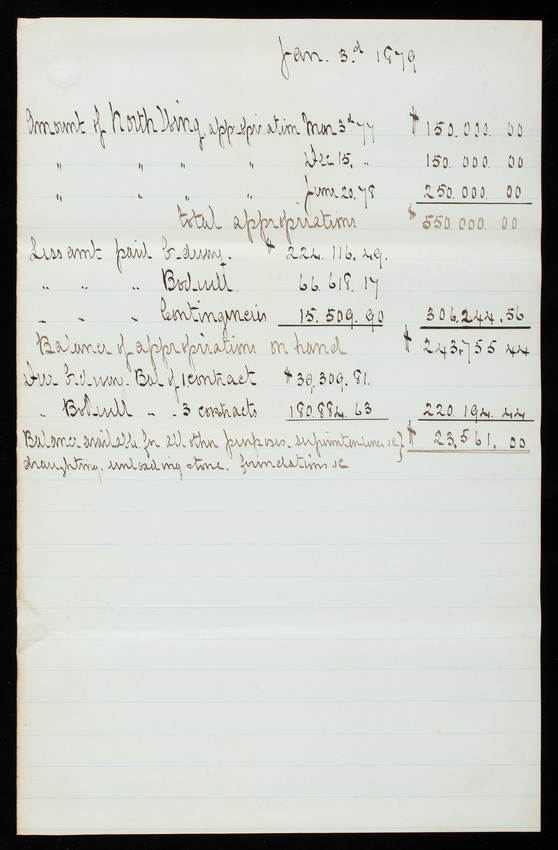 Jan. 3.d 1879
Amount of North Wing appropriation Mar 3d 77 $ 150.000. 00
" " " " Dec 15, " 150.000. 00
" " " " June 20. 78 250.000. 00
total appropriations $ 550.000. 00
Less amt paid Edwy. $ 224.116.49.
" " " Bodwell 66.618.17
" " " Contingencies 15.509.90 306,244.56
Balance of appropriations on hand $ 243,755 44
Due Edwy. Bal of 1 contract $ 39,309.81.
" Bodwell " " 3 contracts 180.884.63 220.194.44
Balance available for all other purposes. superintendence &c } $ 23,561. 00
draughting. unloading stone. foundations &c